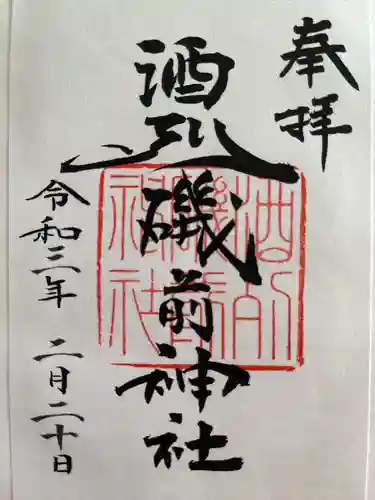 奉拝
酒列磯前神社
令和三年 二月二十日
酒列
磯前
神社